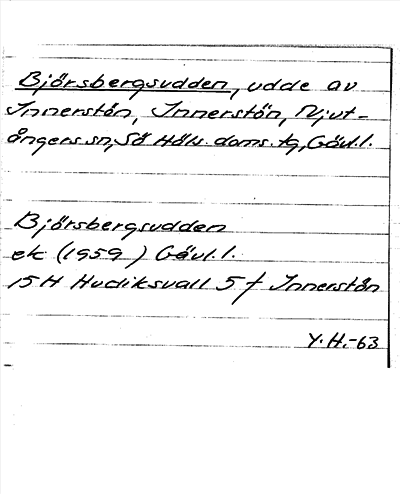 Björsbergsudden, udde av
Innerstön, Innerstön, Njut-
ångers sn, Sö Häls. doms. tg, Gävl.l.
Björsbergsudden
ek (1959) Gävl.l.
15H Hudiksvall 5f Innerstön
Y.H.-63